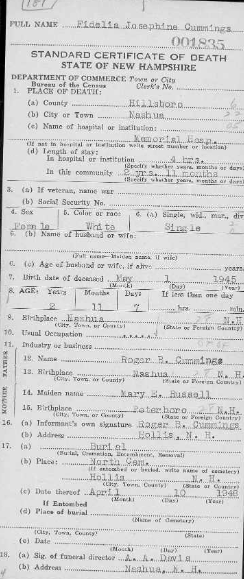 FULL NAME Fidelia Josephine Cummings
001835
STANDARD CERTIFICATE OF DEATH
STATE OF NEW HAMPSHIRE
DEPARTMENT OF COMMERCE Town or City
Bureau of the Census Clerk's No.
1. PLACE OF DEATH:
(a) County Hillsboro
(b) City or Town Nashua
(c) Name of hospital or institution:
Memorial Hosp.
(If not in hospital or institution write street number or location)
(d) Length of stay:
In hospital or institution 4 hrs.
(Specify whether years, months or days)
In this community 2 yrs. 11 months
(Specify whether years, months or days)
3. (a) If veteran, name war
(b) Social Security No.
4. Sex 5. Color or race 6. (a) Single, wid., mar., div.
Female White Single
6. (b) Name of husband or wife:
(Full name—Maiden name, if wife)
6. (c) Age of husband or wife, if alive years.
7. Birth date of deceased May 1 1945
(Month) (Day) (Year)
8. AGE: Years Months Days If less than one day
2 11 7 hrs. min.
9. Birthplace Nashua N.H.
(City, Town, County) (State or Foreign Country)
10. Usual Occupation
11. Industry or business
FATHER
12. Name Roger B. Cummings
13. Birthplace Nashua N. H.
(City, Town, County) (State or Foreign Country)
MOTHER
14. Maiden name Mary E. Russell
15. Birthplace Peterboro N.H.
(City, Town, County) (State or Foreign Country)
16. (a) Informant's own signature Roger B. Cummings
(b) Address Hollis, N. H.
17. (a) Burial
(Burial, Cremation, Entombment, Removal)
(b) Place: North Cem.
(If entombed or buried, write name of cemetery)
Hollis N. H.
(City, Town, County) (State)
(c) Date thereof April 10 1948
If Entombed (Month) (Day) (Year)
(d) Place of burial
(Name of Cemetery)
(City, Town, County) (State)
(e) Date
(Month) (Day) (Year)
18. (a) Sig. of funeral director A. A. Davis
(b) Address Nashua, N. H.